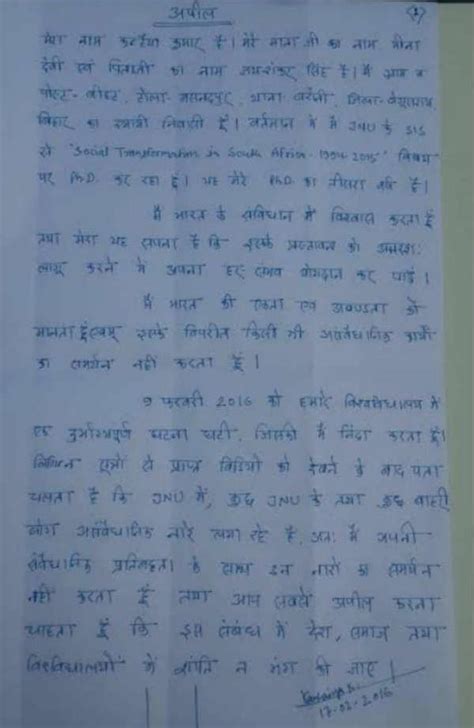 अपील
(1)
मेरा नाम कन्हैया कुमार है। मेरे माता जी का नाम मीना
देवी एवं पिताजी का नाम जयशंकर सिंह है। मैं ग्राम व
पोस्ट- बीहट, टोला- मसनदपुर, थाना बरौनी, जिला- बेगूसराय,
बिहार का स्थायी निवासी हूँ। वर्तमान में मैं JNU के SIS
से "Social Transformation in South Africa- 1994-2015" विषय
पर Ph.D. कर रहा हूँ। यह मेरे Ph.D. का तीसरा वर्ष है।
मैं भारत के संविधान में विश्वास करता हूँ
तथा मेरा यह सपना है कि इसके प्रस्तावना को अक्षरश:
लागू करने में अपना हर संभव योगदान कर पाऊँ।
मैं भारत की एकता एवं अखण्डता को
मानता हूँ एवम् इसके विपरीत किसी भी असंवैधानिक कार्यों
का समर्थन नहीं करता हूँ।
9 फरवरी 2016 को हमारे विश्वविद्यालय में
एक दुर्भाग्यपूर्ण घटना घटी, जिसकी मैं निंदा करता हूँ।
विभिन्न सूत्रों से प्राप्त विडियो को देखने के बाद पता
चलता है कि JNU में, कुछ JNU के तथा कुछ बाहरी
लोग असंवैधानिक नारे लगा रहे हैं, अत: मैं अपनी
संवैधानिक प्रतिबद्धता के साथ इन नारों का समर्थन
नहीं करता हूँ तथा आप सबसे अपील करना
चाहता हूँ कि इस संबंध में देश, समाज तथा
विश्वविद्यालयों में शांति न भंग की जाए।
17-02-2016